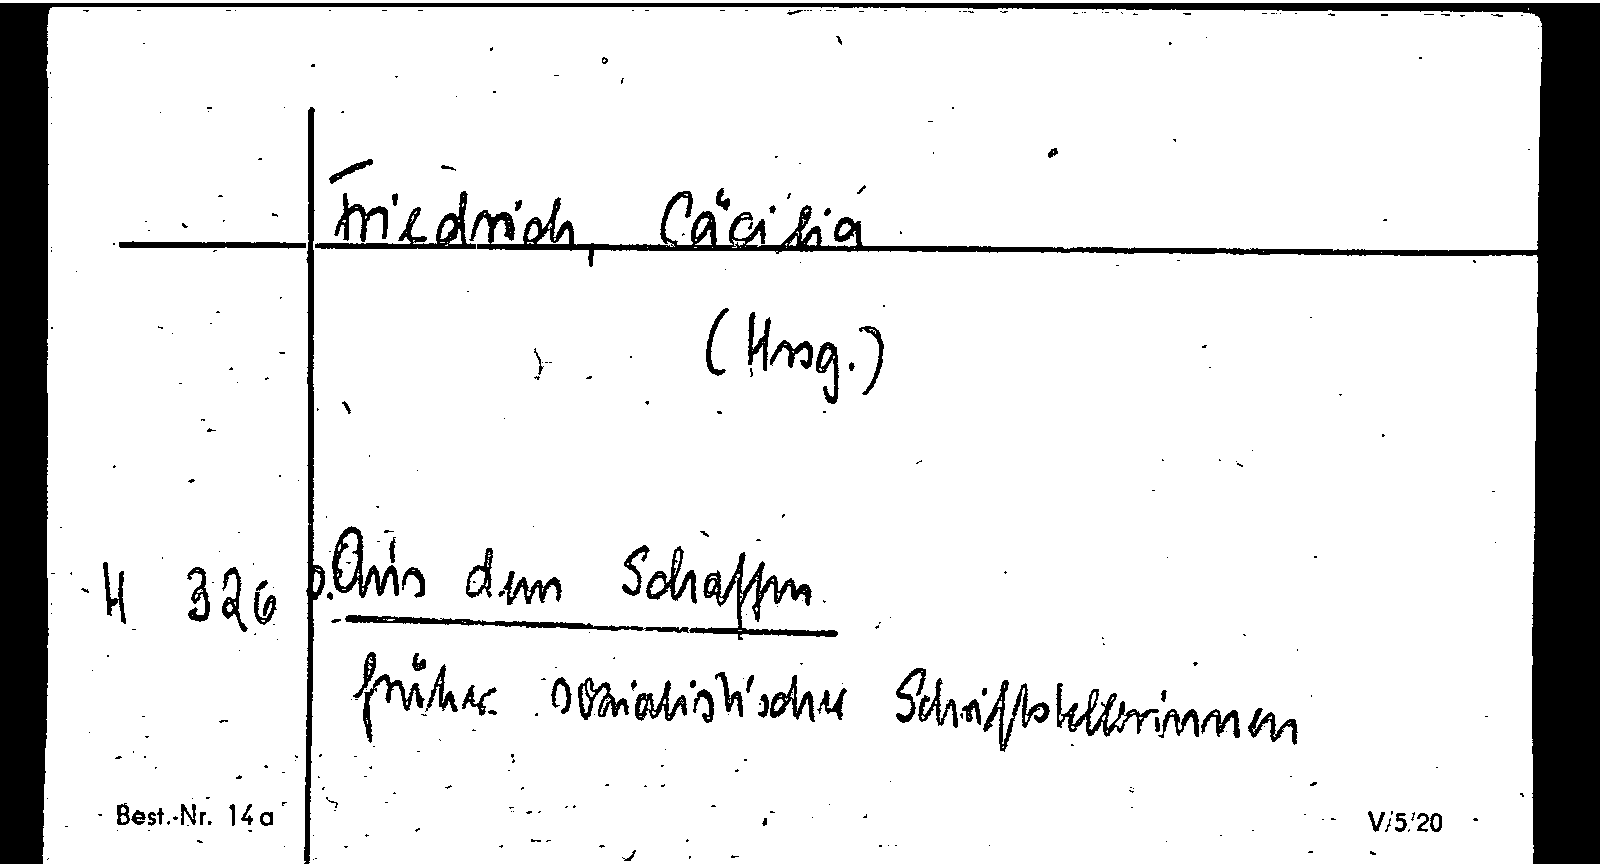 Friedrich, Cäcilia
(Hrsg.)
H 326 b. Aus dem Schaffen
früher sozialistischer Schriftstellerinnen
Best.-Nr. 14a V/5/20